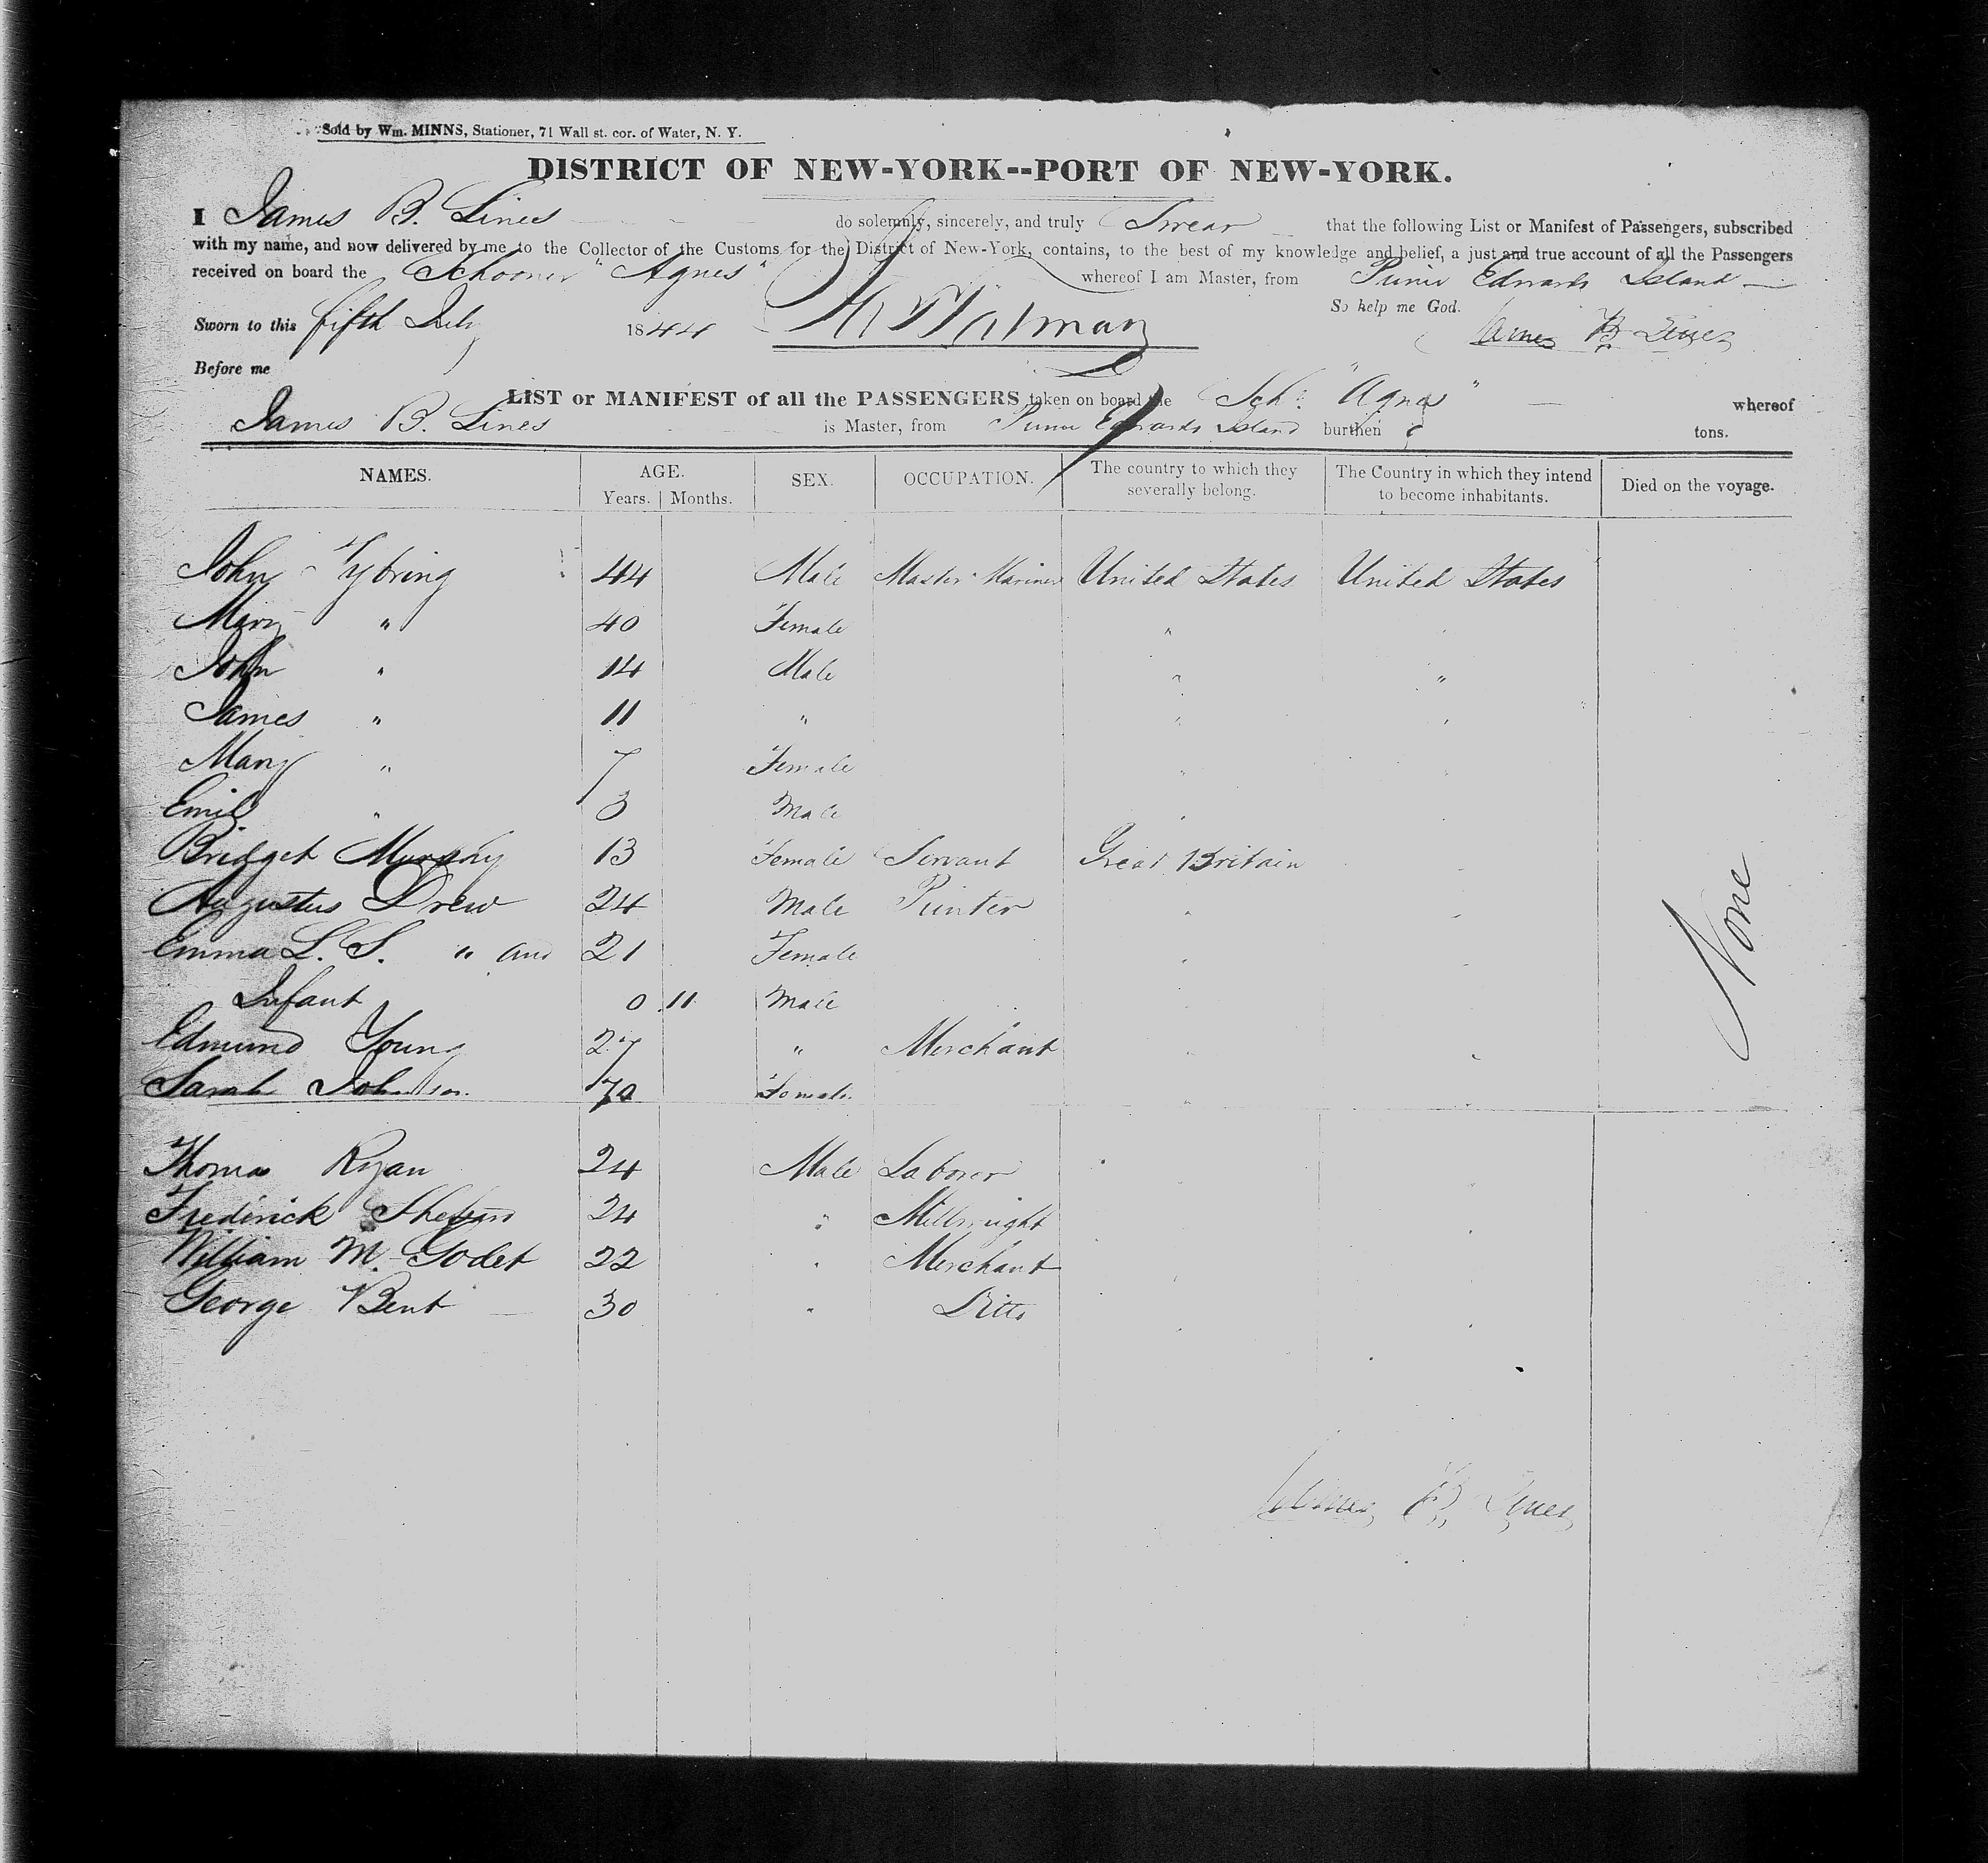 Sold by Wm. MINNS, Stationer, 71 Wall st. cor. of Water, N. Y.
DISTRICT OF NEW-YORK--PORT OF NEW-YORK.
I James B. Lines do solemnly, sincerely, and truly Swear that the following List or Manifest of Passengers, subscribed
with my name, and now delivered by me to the Collector of the Customs for the District of New-York, contains, to the best of my knowledge and belief, a just and true account of all the Passengers
received on board the Schooner "Agnes" whereof I am Master, from Prince Edwards Island
So help me God.
Sworn to this fifth July 1844 James B Lines
Before me
LIST or MANIFEST of all the PASSENGERS taken on board the Schr. "Agnes" whereof
James B. Lines is Master, from Prince Edwards Island burthen tons.
NAMES. AGE. Years. Months. SEX. OCCUPATION. The country to which they severally belong. The Country in which they intend to become inhabitants. Died on the voyage.
John Fybring 44 Male Master Mariner United States United States
Mary " 40 Female " "
John " 14 Male " "
James " 11 " " "
Mary " 7 Female " "
Emil " 3 Male "
Bridget Murphy 13 Female Servant Great Britain "
Augustus Drew 24 Male Printer " "
Emma L. S. " and 21 Female " "
Infant 0 11 Male
Edmund Young 27 " Merchant " "
Sarah Johnson 70 Female " "
Thomas Ryan 24 Male Laborer " "
Frederick 24 " Millwright " "
William M. Godet 22 " Merchant
George Bent 30 " Ditto " "
None
James B Lines